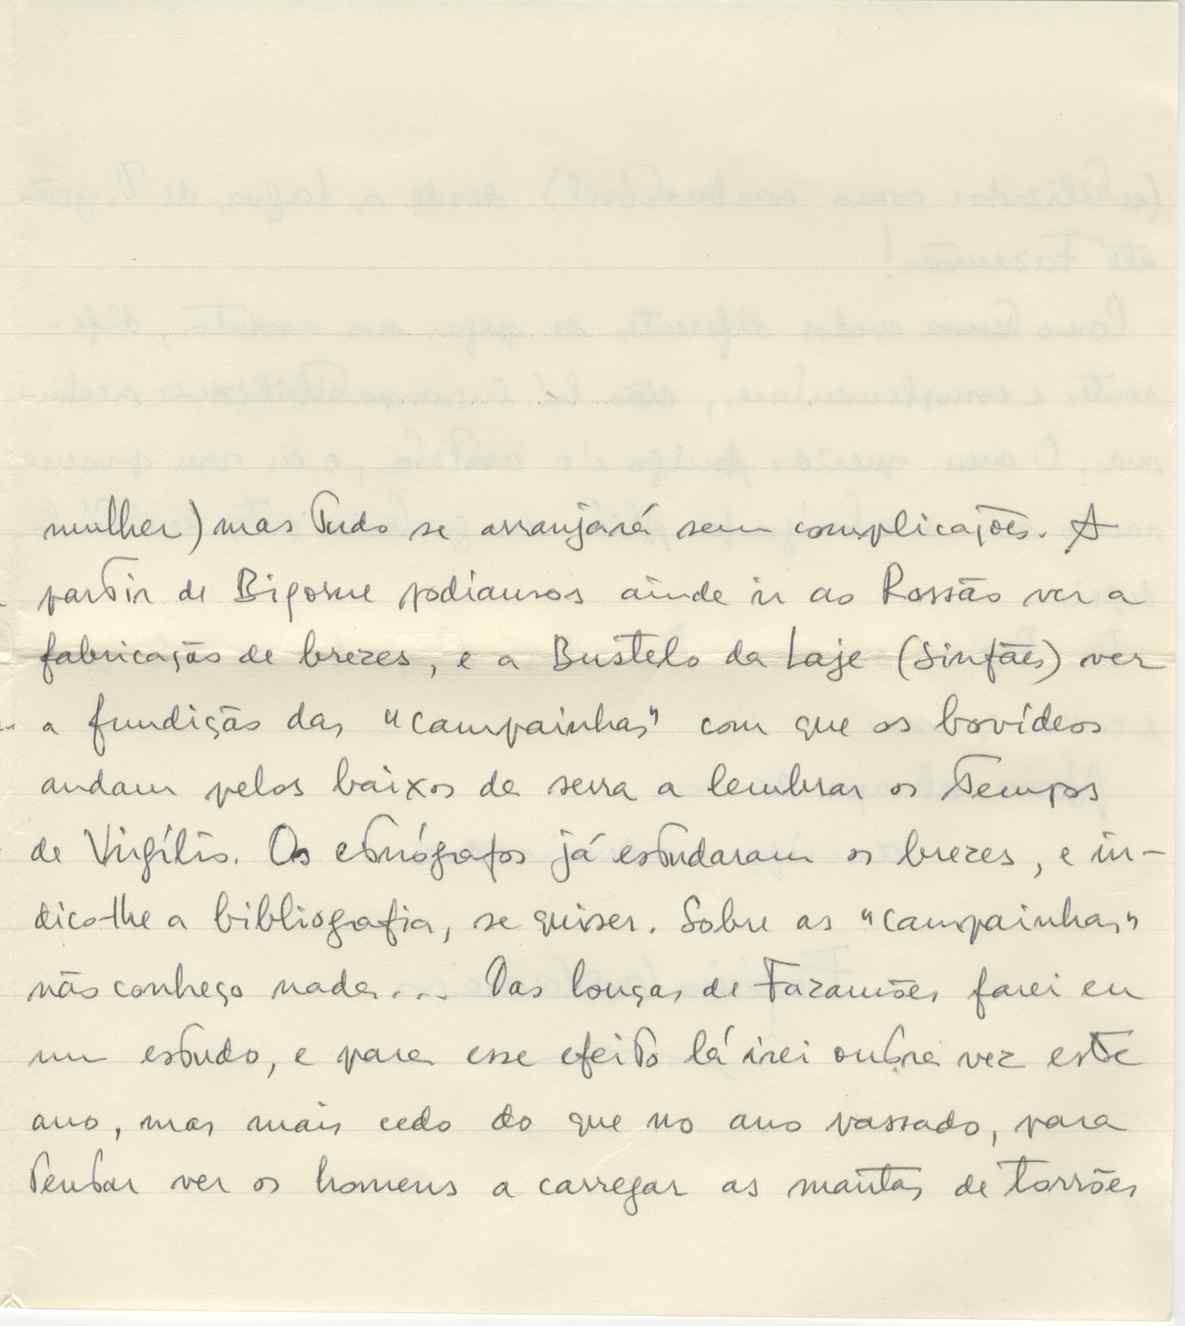 mulher) mas tudo se arranjará sem complicações. A
partir de Bigorne podíamos ainda ir ao Rossão ver a
fabricação de brezes, e a Bustelo da Laje (Sinfães) ver
a fundição das "campainhas" com que os bovídeos
andam pelos baixos da serra a lembrar os tempos
de Virgílio. Os etnógrafos já estudaram os brezes, e in-
dico-lhe a bibliografia, se quiser. Sobre as "campainhas"
não conheço nada... Das louças de Fazamões farei eu
um estudo, e para esse efeito lá irei outra vez este
ano, mas mais cedo do que no ano passado, para
tentar ver os homens a carregar as mantas de torrões